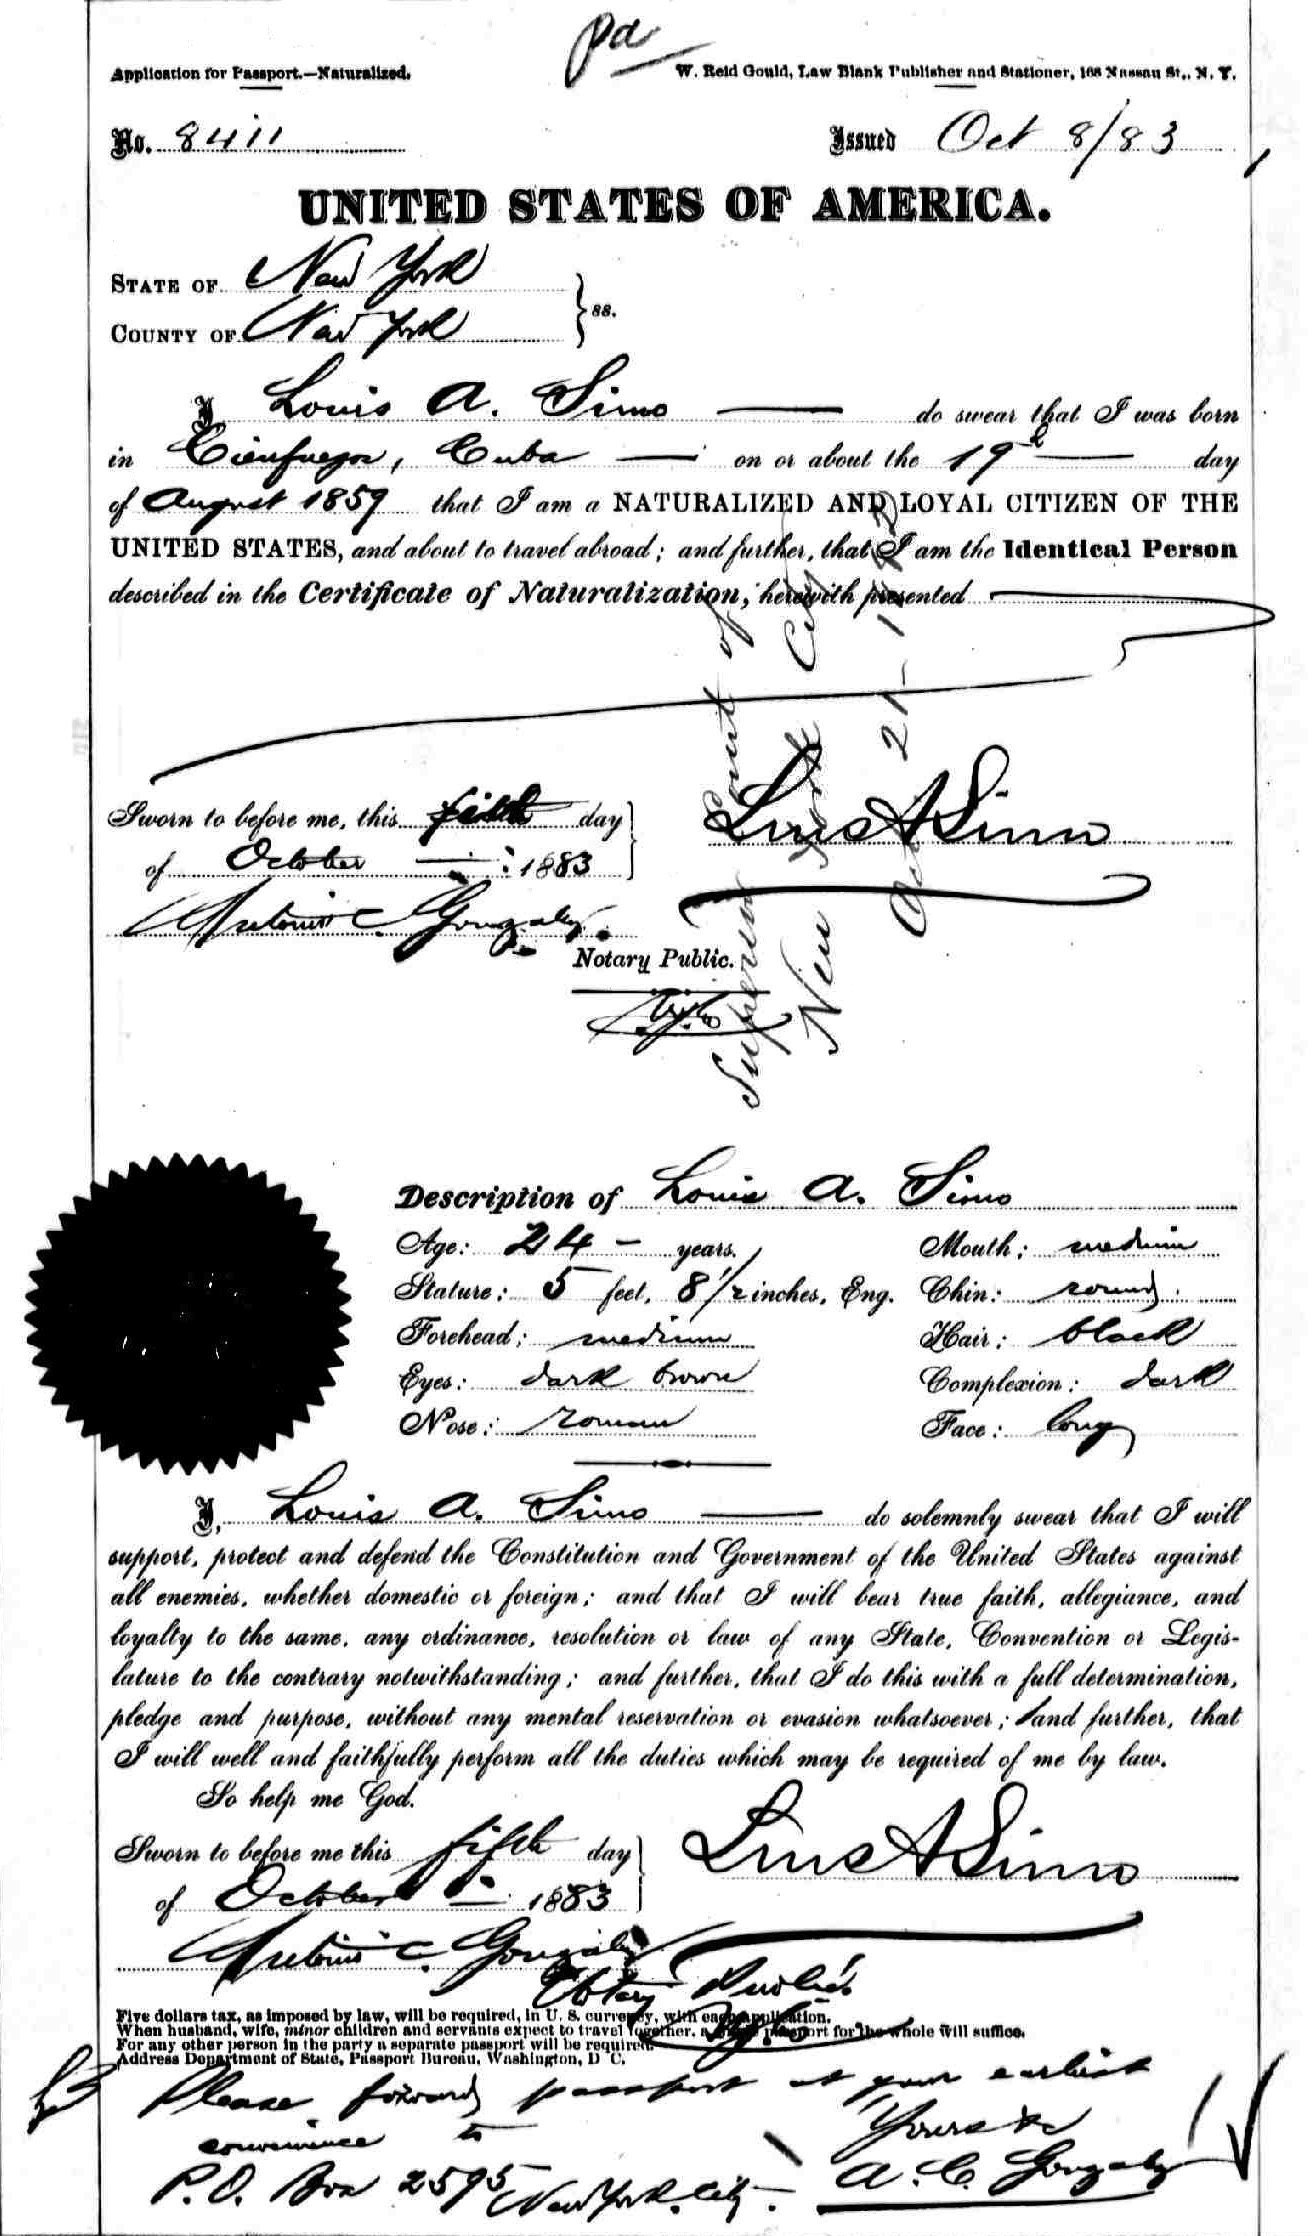 pd
Application for Passport.—Naturalized.
W. Reid Gould, Law Blank Publisher and Stationer, 168 Nassau St., N. Y.
No. 8411
Issued Oct 8/83
UNITED STATES OF AMERICA.
STATE OF New York
COUNTY OF New York
} ss.
I, Louis A. Simo — do swear that I was born
in Cienfuegos, Cuba — on or about the 19th — day
of August 1859 that I am a NATURALIZED AND LOYAL CITIZEN OF THE
UNITED STATES, and about to travel abroad; and further, that I am the Identical Person
described in the Certificate of Naturalization, herewith presented
Superior Court of
New York City
Oct 21 - 1882
Sworn to before me, this fifth day
of October — 1883
Luis A Simo
Antonio C. Gonzalez.
Notary Public.
N.Y.Co
Description of Louis A. Simo
Age: 24 – years.
Mouth: medium
Stature: 5 feet, 8 1/2 inches, Eng.
Chin: round.
Forehead: medium
Hair: black
Eyes: dark brown
Complexion: dark
Nose: roman
Face: long
I, Louis A. Simo — do solemnly swear that I will
support, protect and defend the Constitution and Government of the United States against
all enemies, whether domestic or foreign; and that I will bear true faith, allegiance, and
loyalty to the same, any ordinance, resolution or law of any State, Convention or Legis-
lature to the contrary notwithstanding; and further, that I do this with a full determination,
pledge and purpose, without any mental reservation or evasion whatsoever; and further, that
I will well and faithfully perform all the duties which may be required of me by law.
So help me God.
Sworn to before me this fifth day
of October — 1883
Luis A Simo
Antonio C. Gonzalez
Notary Public
N.Y.Co
Five dollars tax, as imposed by law, will be required, in U. S. currency, with each application.
When husband, wife, minor children and servants expect to travel together, a single passport for the whole will suffice.
For any other person in the party a separate passport will be required.
Address Department of State, Passport Bureau, Washington, D C.
Please forward passport at your earliest
convenience to
Yours &c
P.O. Box 2595 New York City.
A. C. Gonzalez